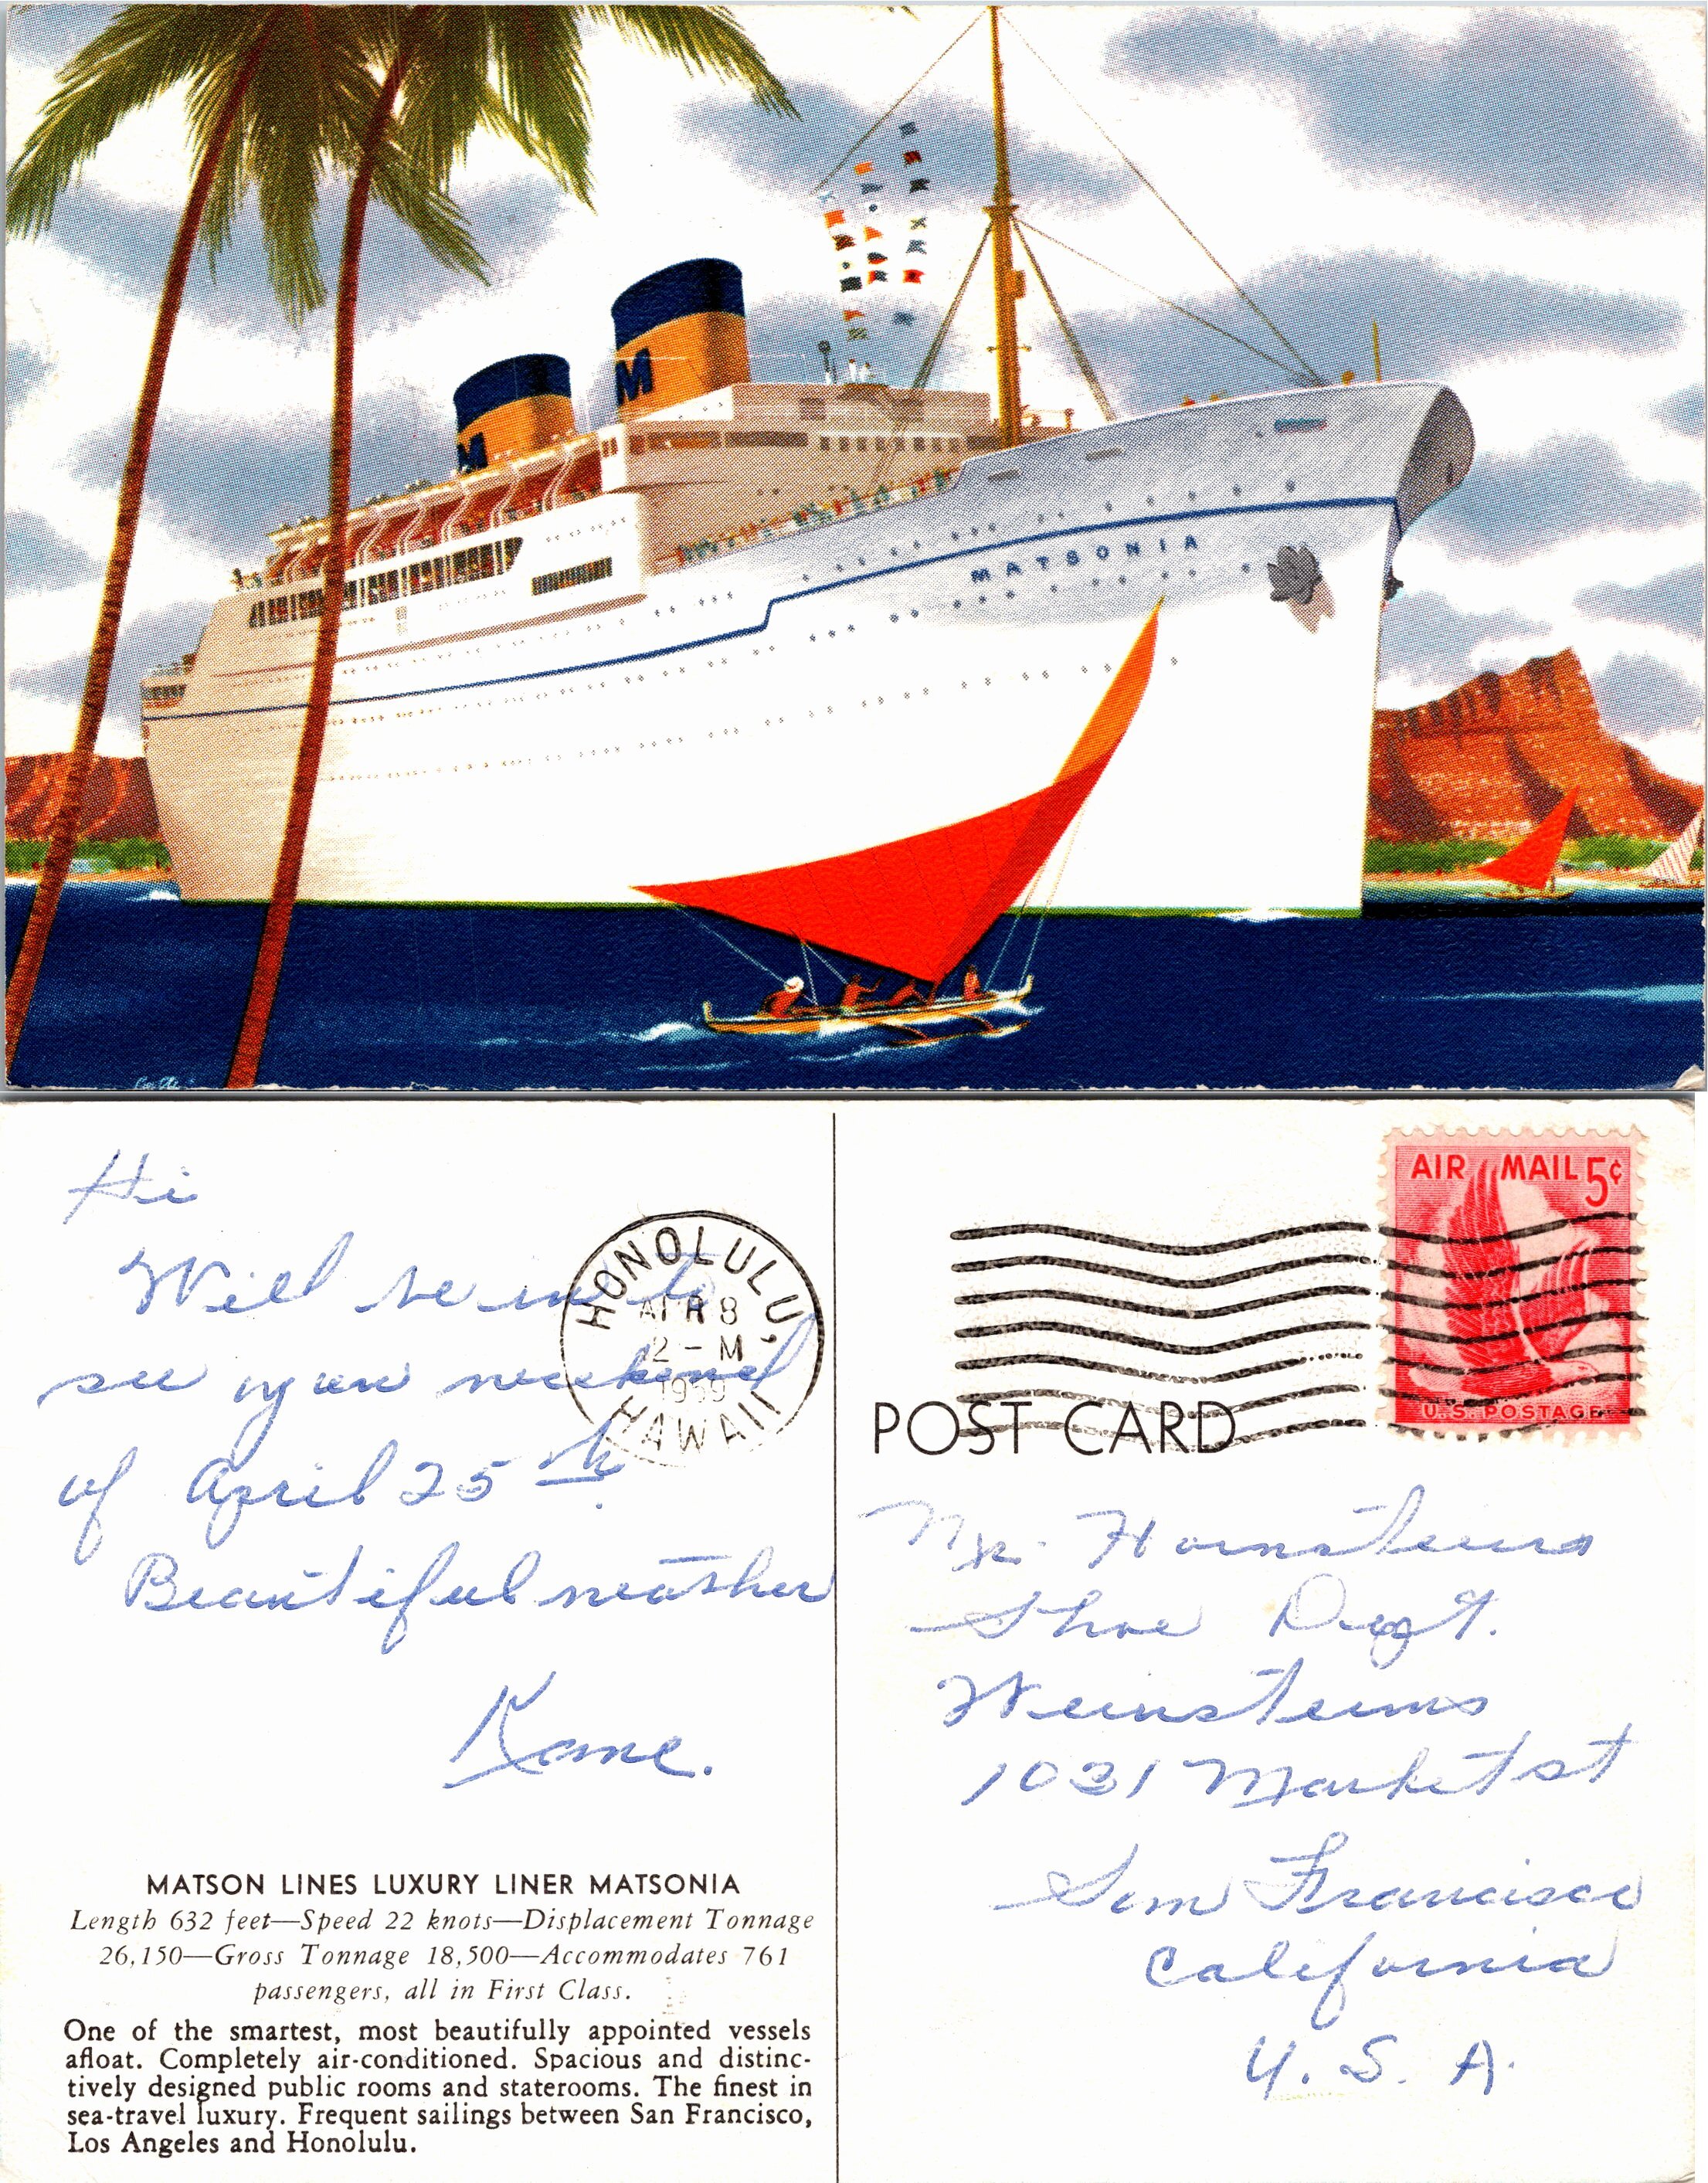 M
M
MATSONIA
Hi
Will be in to
see you weekend
of April 25th.
Beautiful weather
Kane.
HONOLULU,
APR 8
12 - M
1959
HAWAII
MATSON LINES LUXURY LINER MATSONIA
Length 632 feet—Speed 22 knots—Displacement Tonnage
26,150—Gross Tonnage 18,500—Accommodates 761
passengers, all in First Class.
One of the smartest, most beautifully appointed vessels
afloat. Completely air-conditioned. Spacious and distinc-
tively designed public rooms and staterooms. The finest in
sea-travel luxury. Frequent sailings between San Francisco,
Los Angeles and Honolulu.
AIR MAIL 5¢
U.S. POSTAGE
POST CARD
Mr. Hornsteins
Shoe Dept.
Weinsteins
1031 Market st
San Francisco
California
U. S. A.